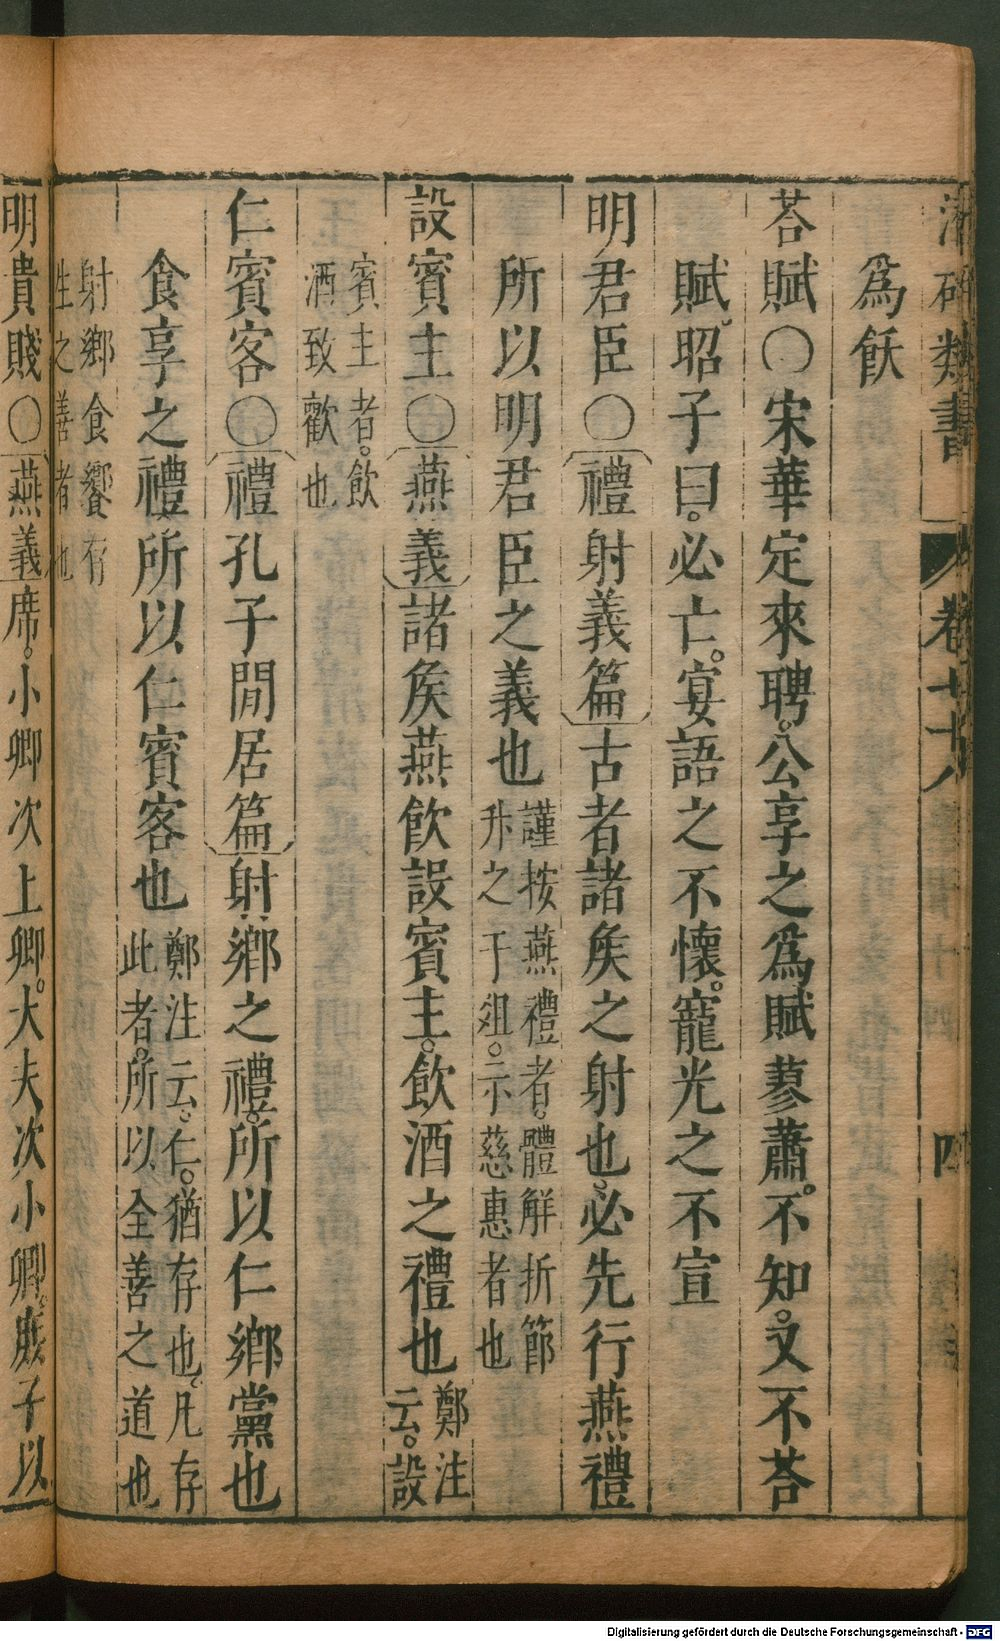 類書 卷 十八 四
為飫
荅賦〇宋華定來聘。公享之為賦蓼蕭。不知。又不荅
賦。昭子曰。必亡。宴語之不懷。寵光之不宣
明君臣〇禮射義篇古者諸矦之射也。必先行燕禮
所以明君臣之義也謹按燕禮者。體解折節
升之于俎。示慈惠者也
設賓主〇燕義諸矦燕飲設賓主。飲酒之禮也鄭注
云。設
賓主者。飲
酒致歡也
仁賓客〇禮孔子閒居篇射鄉之禮。所以仁鄉黨也
食享之禮所以仁賓客也鄭注云。仁。猶存也。凡存
此者。所以全善之道也
射鄉食饗有
性之善者也
明貴賤〇燕義席。小卿次上卿。大夫次小卿。庻子以
Digitalisierung gefördert durch die Deutsche Forschungsgemeinschaft - DFG